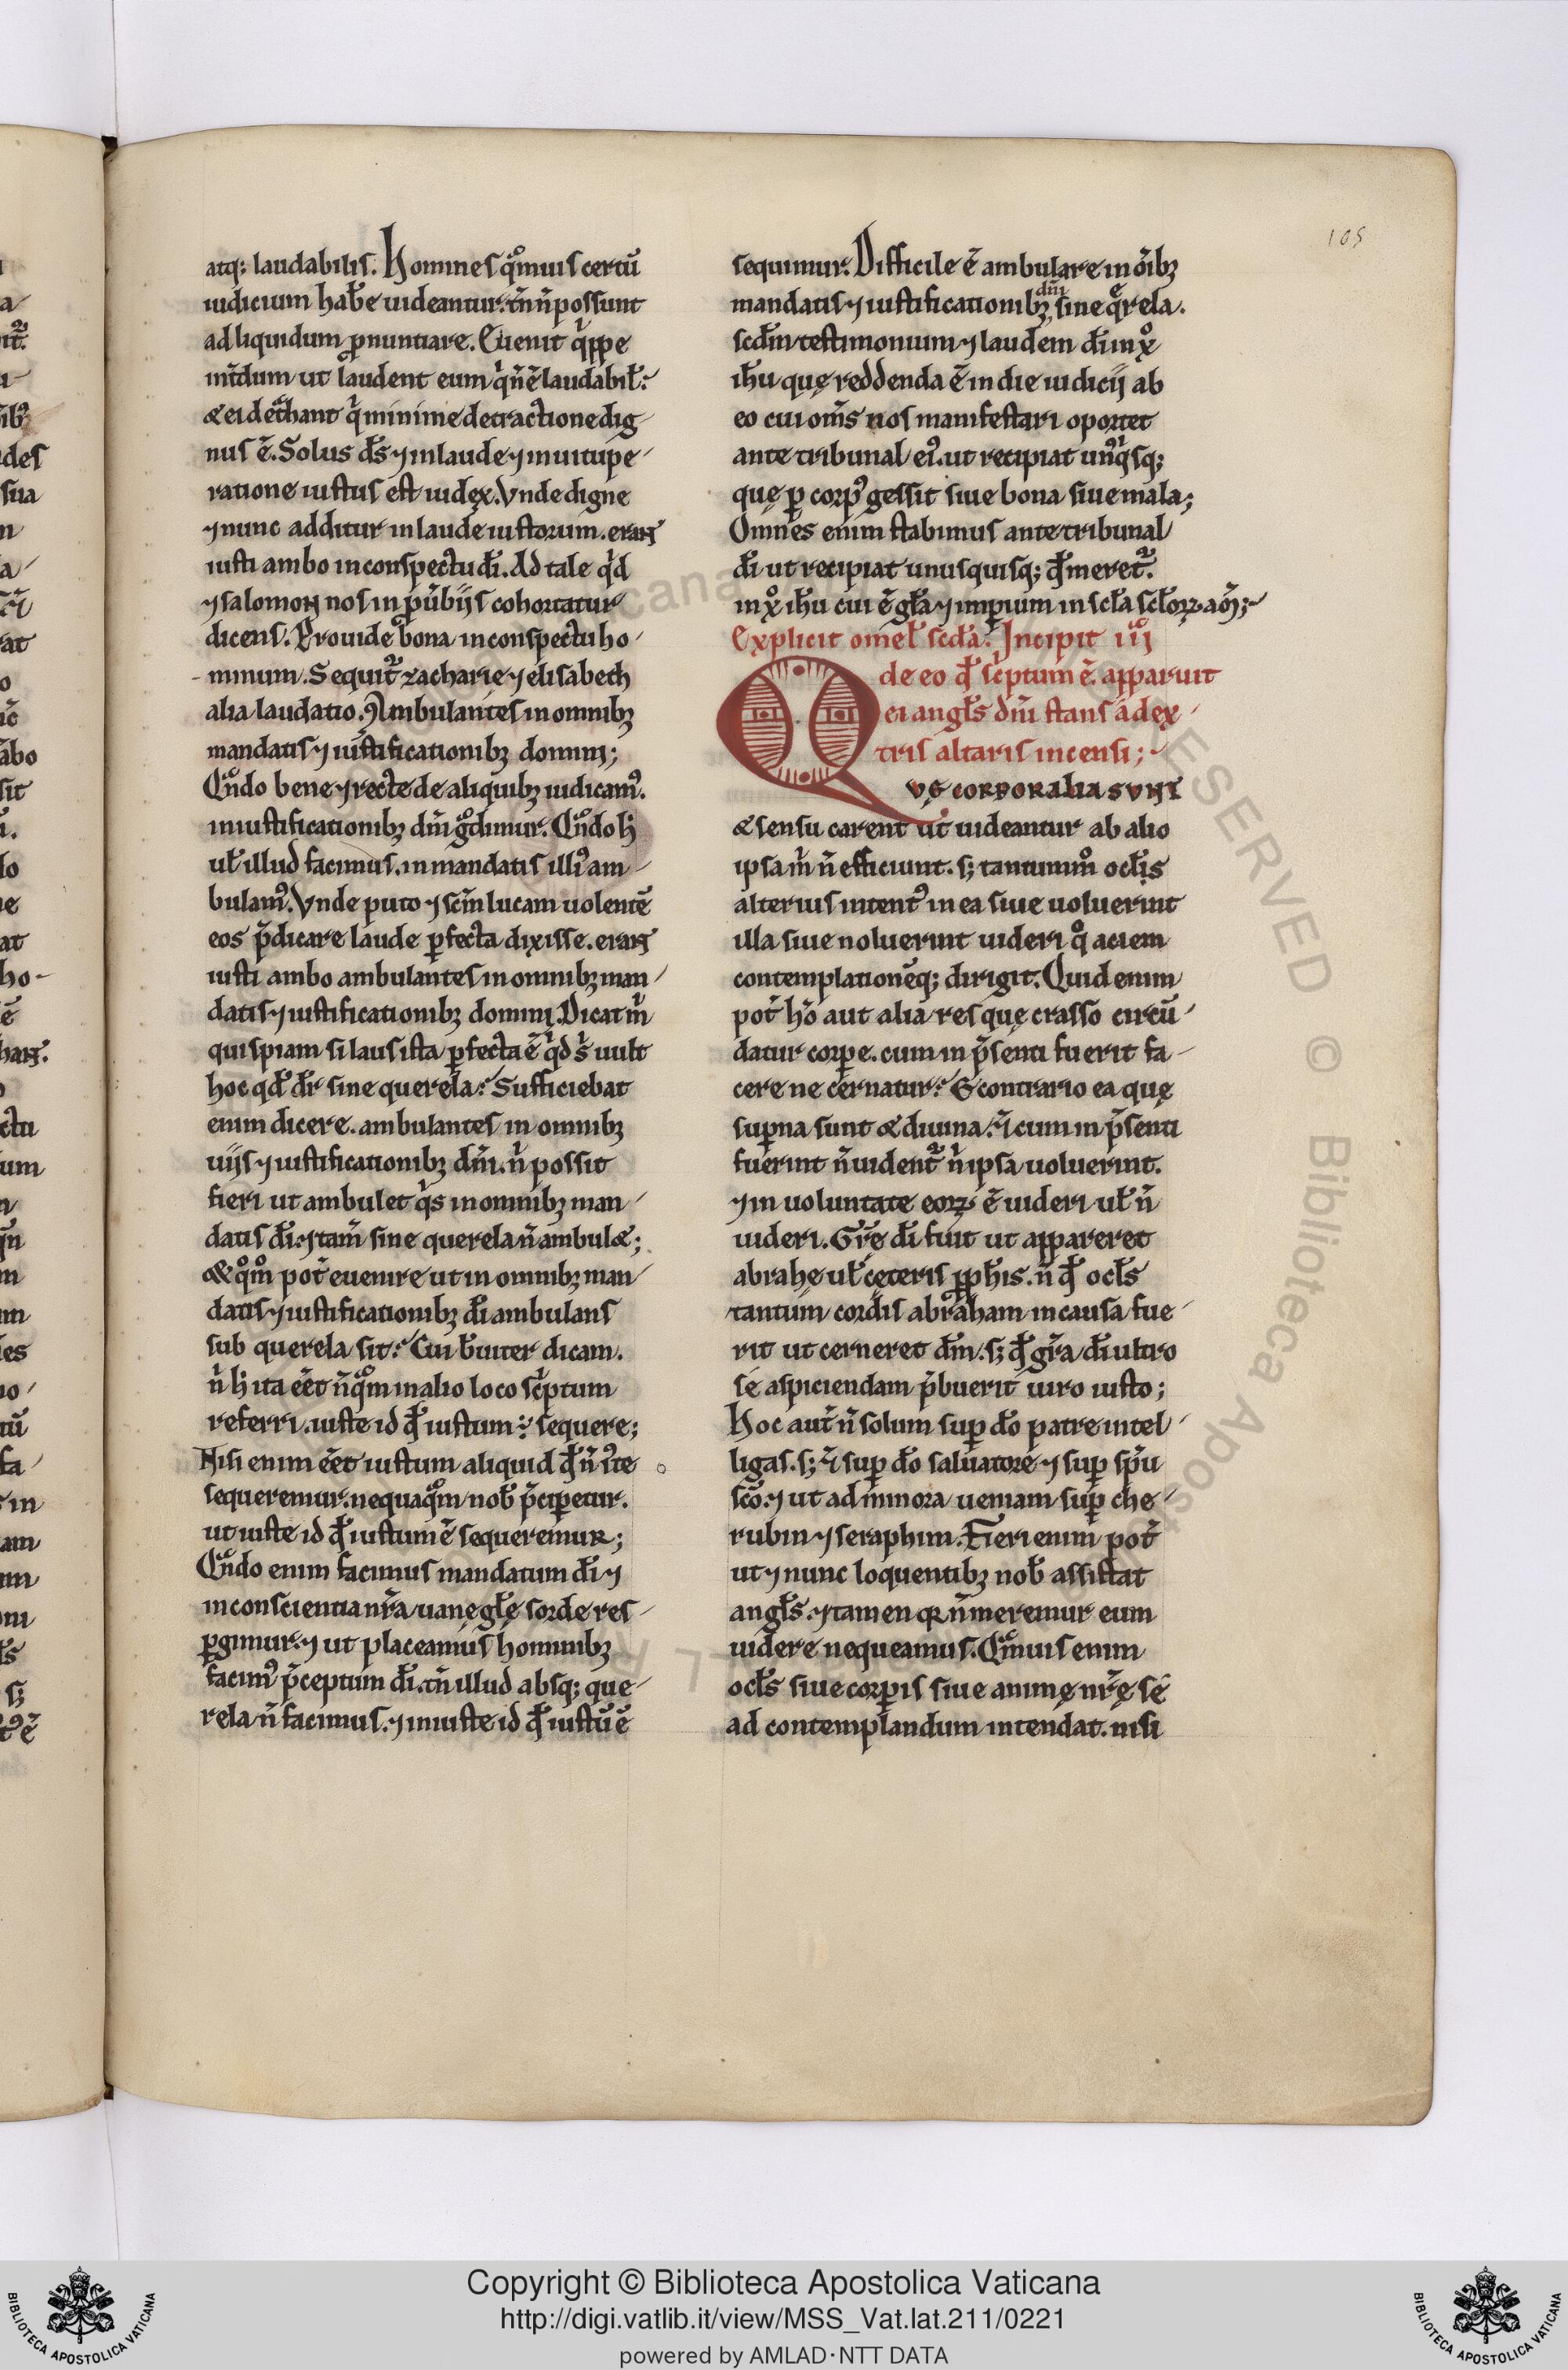 105
atq; laudabilis. Homines qͦmuis certū
iudicium hab̄e uideantur. tn̄ n̄ possunt
ad liquidum ꝓnuntiare. Euenit qͥppe
int̄dum ut laudent eum qͥ n̄ ē laudabil̄.
& ei det̄hant qͥ minime detractione dig
nus ē. Solus ds̄ ⁊ in laude ⁊ in uitupe
ratione iustus est iudex. Vnde digne
⁊ nunc additur in laude iustorum. erant
iusti ambo in conspectu dī. Ad tale qͥd
⁊ salomon nos in ꝓūbiis cohortatur
dicens. Prouide bona in conspectu ho
minum. Sequit᷑ zacharie ⁊ elisabeth
alia laudatio. Ambulantes in omnibꝫ
mandatis ⁊ iustificationibꝫ domini;
Qn̄do bene ⁊ recte de aliquibꝫ iudicamꝰ.
in iustificationibꝫ dn̄i gͣdimur. Qn̄do h̄
ul̄ illud facimus. in mandatis illiꝰ am
bulamꝰ. Vnde puto ⁊ sc̄m lucam uolentē
eos p̄dicare laude ꝑfecta dixisse. erant
iusti ambo ambulantes in omnibꝫ man
datis ⁊ iustificationibꝫ domini. Dicat m̄
quispiam si laus ista ꝑfecta ē qͥd s᷑ uult
hoc qd̄ dr̄ sine querela. Sufficiebat
enim dicere. ambulantes in omnibꝫ
uiis ⁊ iustificationibꝫ dn̄i. n̄ possit
fieri ut ambulet qͥs in omnibꝫ man
datis dī. ⁊ tam̄ sine querela n̄ ambulæ;
& qͦmͦ pot᷑ euenire ut in omnibꝫ man
datis ⁊ iustificationibꝫ dī ambulans
sub querela sit. Cui b᷑uiter dicam.
n̄ h̄ ita eēt nͣqͦm in alio loco sc̄ptum
referri. iuste id qd̄ iustum sequere;
Nisi enim eēt iustum aliquid qd̄ n̄ iꝰte
sequeremur. nequaqͣm nob̄ p̄ciꝑetur.
ut iuste id qd̄ iustum ē sequeremur;
Qn̄do enim facimus mandatum dī ⁊
in conscientia nr̄a uane gl̄ę sorde res
ꝑgimur. ⁊ ut placeamus hominibꝫ
facimꝰ p̄ceptum dī. tn̄ illud absq; que
rela n̄ facimus. ⁊ iniuste id qd̄ iustū ē
sequimur. Difficile ē ambulare in om̄ibꝫ
mandatis ⁊ iustificationibꝫ dn̄i sine qͤrela.
scd̄m testimonium ⁊ laudem dī in xͦ
ih̄u quę reddenda ē in die iudicii ab
eo cui om̄s nos manifestari oportet
ante tribunal eiꝰ. ut recipiat unꝰqͥsq;
quę ꝑ corpꝰ gessit siue bona siue mala;
Omnes enim stabimus ante tribunal
dī ut recipiat unusquisq; qd̄ meret᷑.
in xͦ ih̄u cui ē gl̄a ⁊ imꝑium in scl̄a scl̄oꝝ. am̄;
Explicit omel̄ scd̄a. Incipit iiiͦ
de eo qd̄ scͥptum ē. apparuit
ei angl̄s dn̄i stans a dex
tris altaris incensi;
QVĘ CORPORALIA SVNT
& sensu carent ut uideantur ab alio
ipsa m̄ n̄ efficiunt. s; tantummͦ ocl̄is
alterius intentꝰ in ea siue uoluerint
illa siue noluerint uideri qͦ aciem
contemplationēq; dirigit. Quid enim
pot᷑ hō aut alia res quę crasso circū
datur corꝑe. cum in p̄senti fuerit fa
cere ne cernatur. E contrario ea quę
suꝑna sunt & diuina. &̄ cum in p̄senti
fuerint n̄ uident᷑ n̄ ipsa uoluerint.
⁊ in uoluntate eoꝝ ē uideri ul̄ n̄
uideri. Gr̄e dī fuit ut appareret
abrahę ul̄ cęteris ꝓph̄is. n̄ qd̄ ocl̄s
tantum cordis abraham in causa fue
rit ut cerneret dm̄. s; qd̄ gr̄a dī ultro
se aspiciendam p̄buerit uiro iusto;
Hoc aut̄ n̄ solum suꝑ dō patre intel
ligas. s; &̄ suꝑ dō saluatore ⁊ suꝑ sp̄u
scō. ⁊ ut ad minora ueniam suꝑ che
rubin ⁊ seraphim. Fieri enim pot᷑
ut ⁊ nunc loquentibꝫ nob̄ assistat
angl̄s. ⁊ tamen qꝛ n̄ meremur eum
uidere nequeamus. Qͣmuis enim
ocl̄s siue corꝑis siue animę nr̄ę se
ad contemplandum intendat. nisi
Copyright © Biblioteca Apostolica Vaticana
http://digi.vatlib.it/view/MSS_Vat.lat.211/0221
powered by AMLAD·NTT DATA
BIBLIOTECA APOSTOLICA VATICANA
BIBLIOTECA APOSTOLICA VATICANA